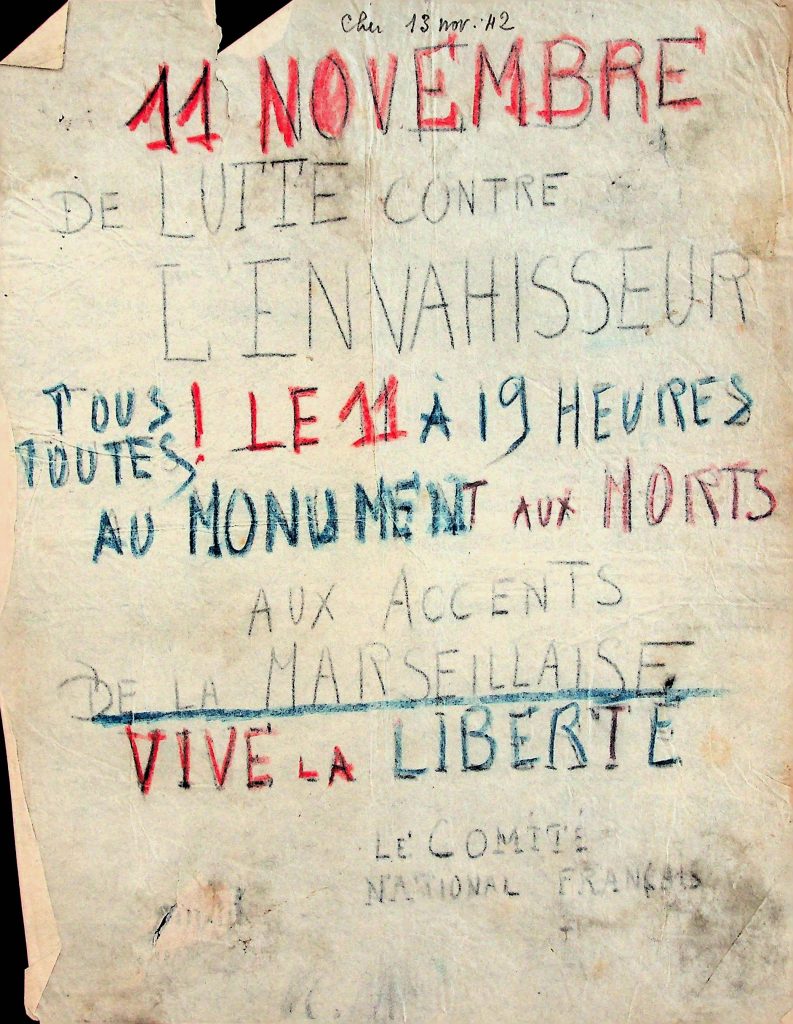 Cher 13 nov. 42
11 NOVEMBRE
DE LUTTE CONTRE
L'ENVAHISSEUR
TOUS
TOUTES ! LE 11 À 19 HEURES
AU MONUMENT AUX MORTS
AUX ACCENTS
DE LA MARSEILLAISE
VIVE LA LIBERTÉ
LE COMITÉ
NATIONAL FRANÇAIS